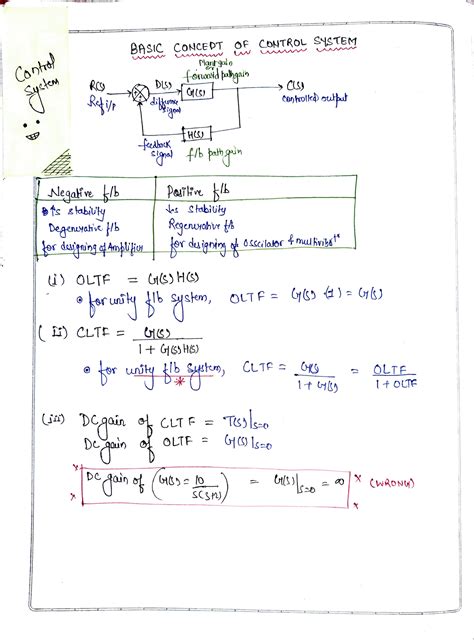 Control
System
BASIC CONCEPT OF CONTROL SYSTEM
Plant gain
or
forward path gain
R(s) D(s) G(s) C(s)
Ref i/p difference
signal controlled output
H(s)
feedback
signal f/b path gain
Negative f/b Positive f/b
↑s stability ↓s stability
Degenerative f/b Regenerative f/b
for designing of Amplifier for designing of Osscilator & multivibrtr
(i) OLTF = G(s) H(s)
for unity f/b system, OLTF = G(s) (1) = G(s)
(ii) CLTF = G(s)
1 + G(s)H(s)
for unity f/b system, CLTF = G(s) = OLTF
1 + G(s) 1 + OLTF
(iii) DC gain of CLTF = T(s)|s=0
DC gain of OLTF = G(s)|s=0
DC gain of (G(s) = 10 ) = G(s)|s=0 = ∞ × (WRONG)